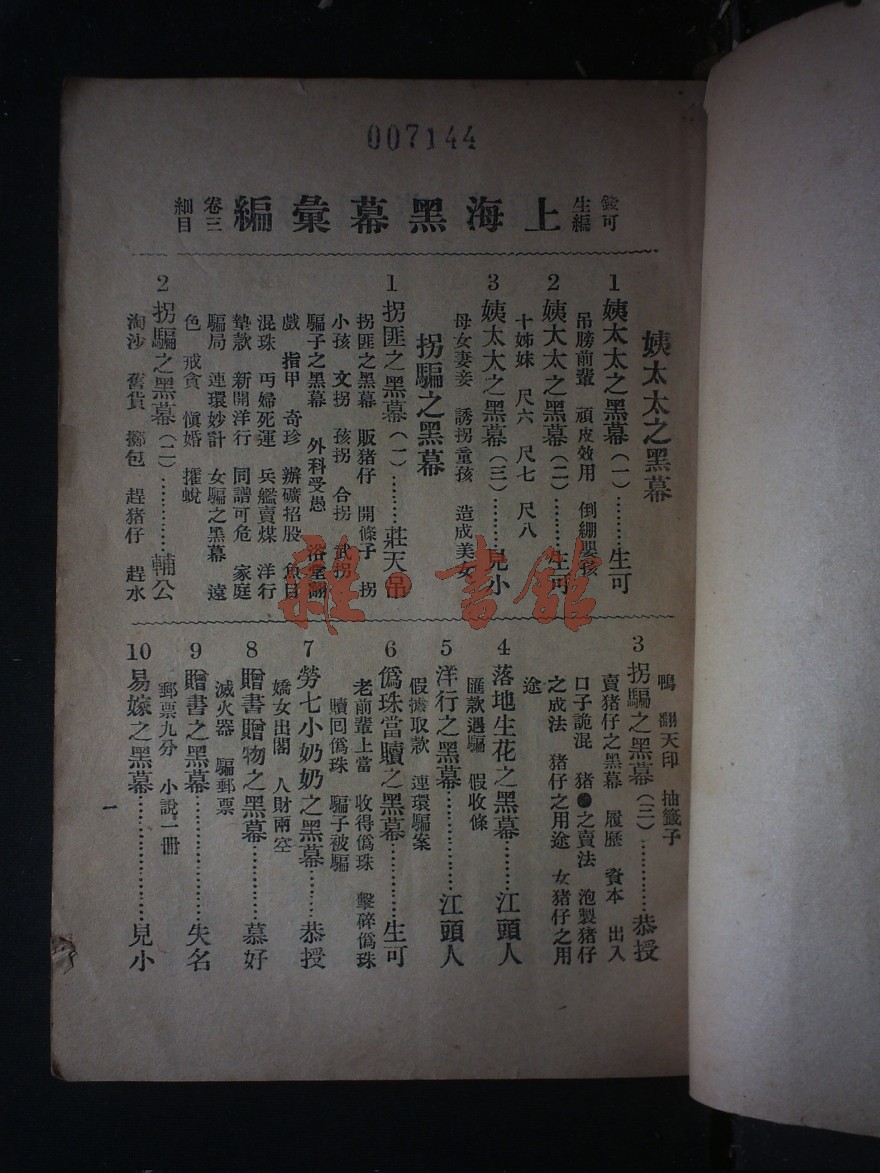 007144
錢可
生編
上海黑幕彙編
卷三
細目
姨太太之黑幕
1 姨太太之黑幕(一)………生可
吊膀前輩 頑皮效用 倒繃嬰孩
2 姨太太之黑幕(二)………生可
十姊妹 尺六 尺七 尺八
3 姨太太之黑幕(三)………兒小
母女妻妾 誘拐童孩 造成美女
拐騙之黑幕
1 拐匪之黑幕(一)………莊天吊
拐匪之黑幕 販猪仔 開條子 拐
小孩 文拐 孩拐 合拐 武拐
騙子之黑幕 外科受愚 浴堂翻
戲 指甲 奇珍 辦礦招股 魚目
混珠 丐婦死運 兵艦賣煤 洋行
墊款 新開洋行 同譜可危 家庭
騙局 連環妙計 女騙之黑幕 遠
色 戒貪 愼婚 擢蛻
2 拐騙之黑幕(二)…………輔公
淘沙 舊貨 擲包 趕猪仔 趕水
鴨 翻天印 抽籤子
3 拐騙之黑幕(三)…………恭授
賣猪仔之黑幕 履歷 資本 出入
口子詭混 猪●之賣法 泡製猪仔
之成法 猪仔之用途 女猪仔之用
途
4 落地生花之黑幕………江頭人
匯款遇騙 假收條
5 洋行之黑幕………………江頭人
假擔取款 連環騙案
6 僞珠當贖之黑幕…………生可
老前輩上當 收得僞珠 擊碎僞珠
贖回僞珠 騙子被騙
7 勞七小奶奶之黑幕………恭授
嬌女出閣 人財兩空
8 贈書贈物之黑幕…………慕好
滅火器 騙郵票
9 贈書之黑幕………………失名
郵票九分 小說一册
10 易嫁之黑幕………………兒小
一
雜·書館